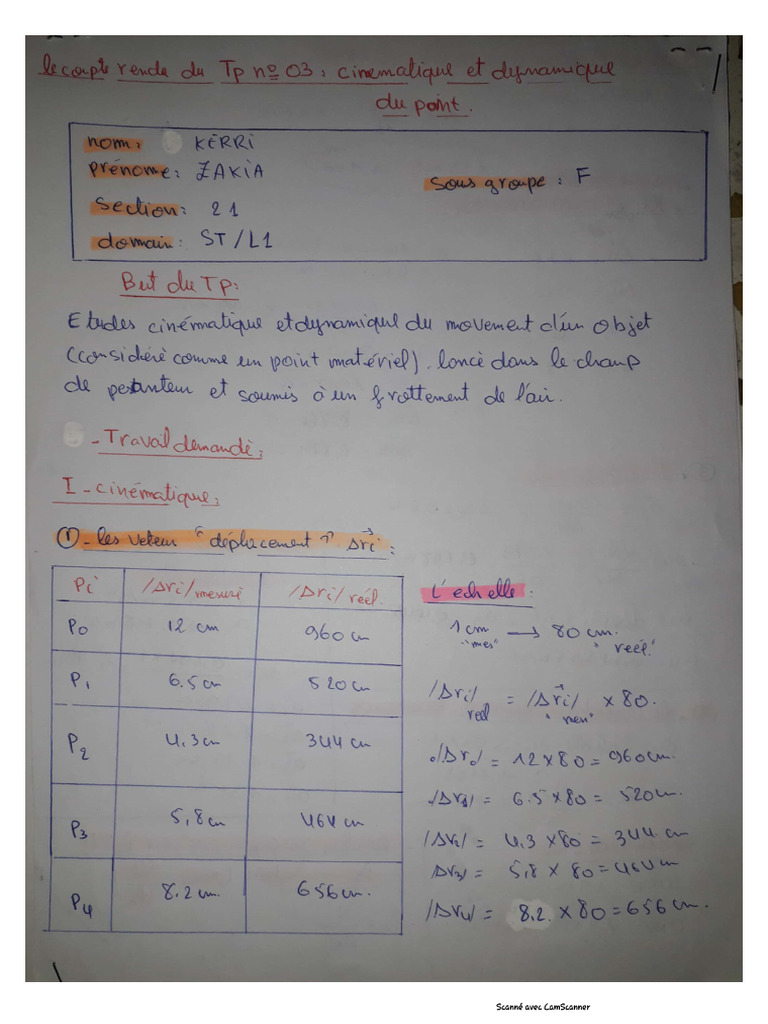 le compte rendu du Tp nº 03 : cinematique et dynamique
du point.
nom: KERRI
prénome: ZAKIA
sous groupe : F
section: 21
domain: ST/L1
But du TP:
Etudes cinématique et dynamique du movement d'un objet
(considéré comme un point matériel). loncé dans le champ
de pesanteur et soumis à un frottement de l'air.
- Travail demandé:
I - cinématique:
① - les veteur " déplacement " Δri :
Pi /Δri/mesuré /Δri/réel.
P0 12 cm 960 cm
P1 6.5 cm 520 cm
P2 4,3 cm 344 cm
P3 5,8 cm 464 cm
P4 8.2 cm. 656 cm.
L'echelle :
1 cm "mes" → 80 cm. "réel."
/Δri/ réel = /Δri/ "men" × 80.
/Δr0/ = 12 × 80 = 960 cm.
/Δr1/ = 6.5 × 80 = 520 cm.
/Δr2/ = 4.3 × 80 = 344 cm
Δr3/ = 5,8 × 80 = 464 cm
/Δr4/ = 8.2. × 80 = 656 cm.
Scanné avec CamScanner